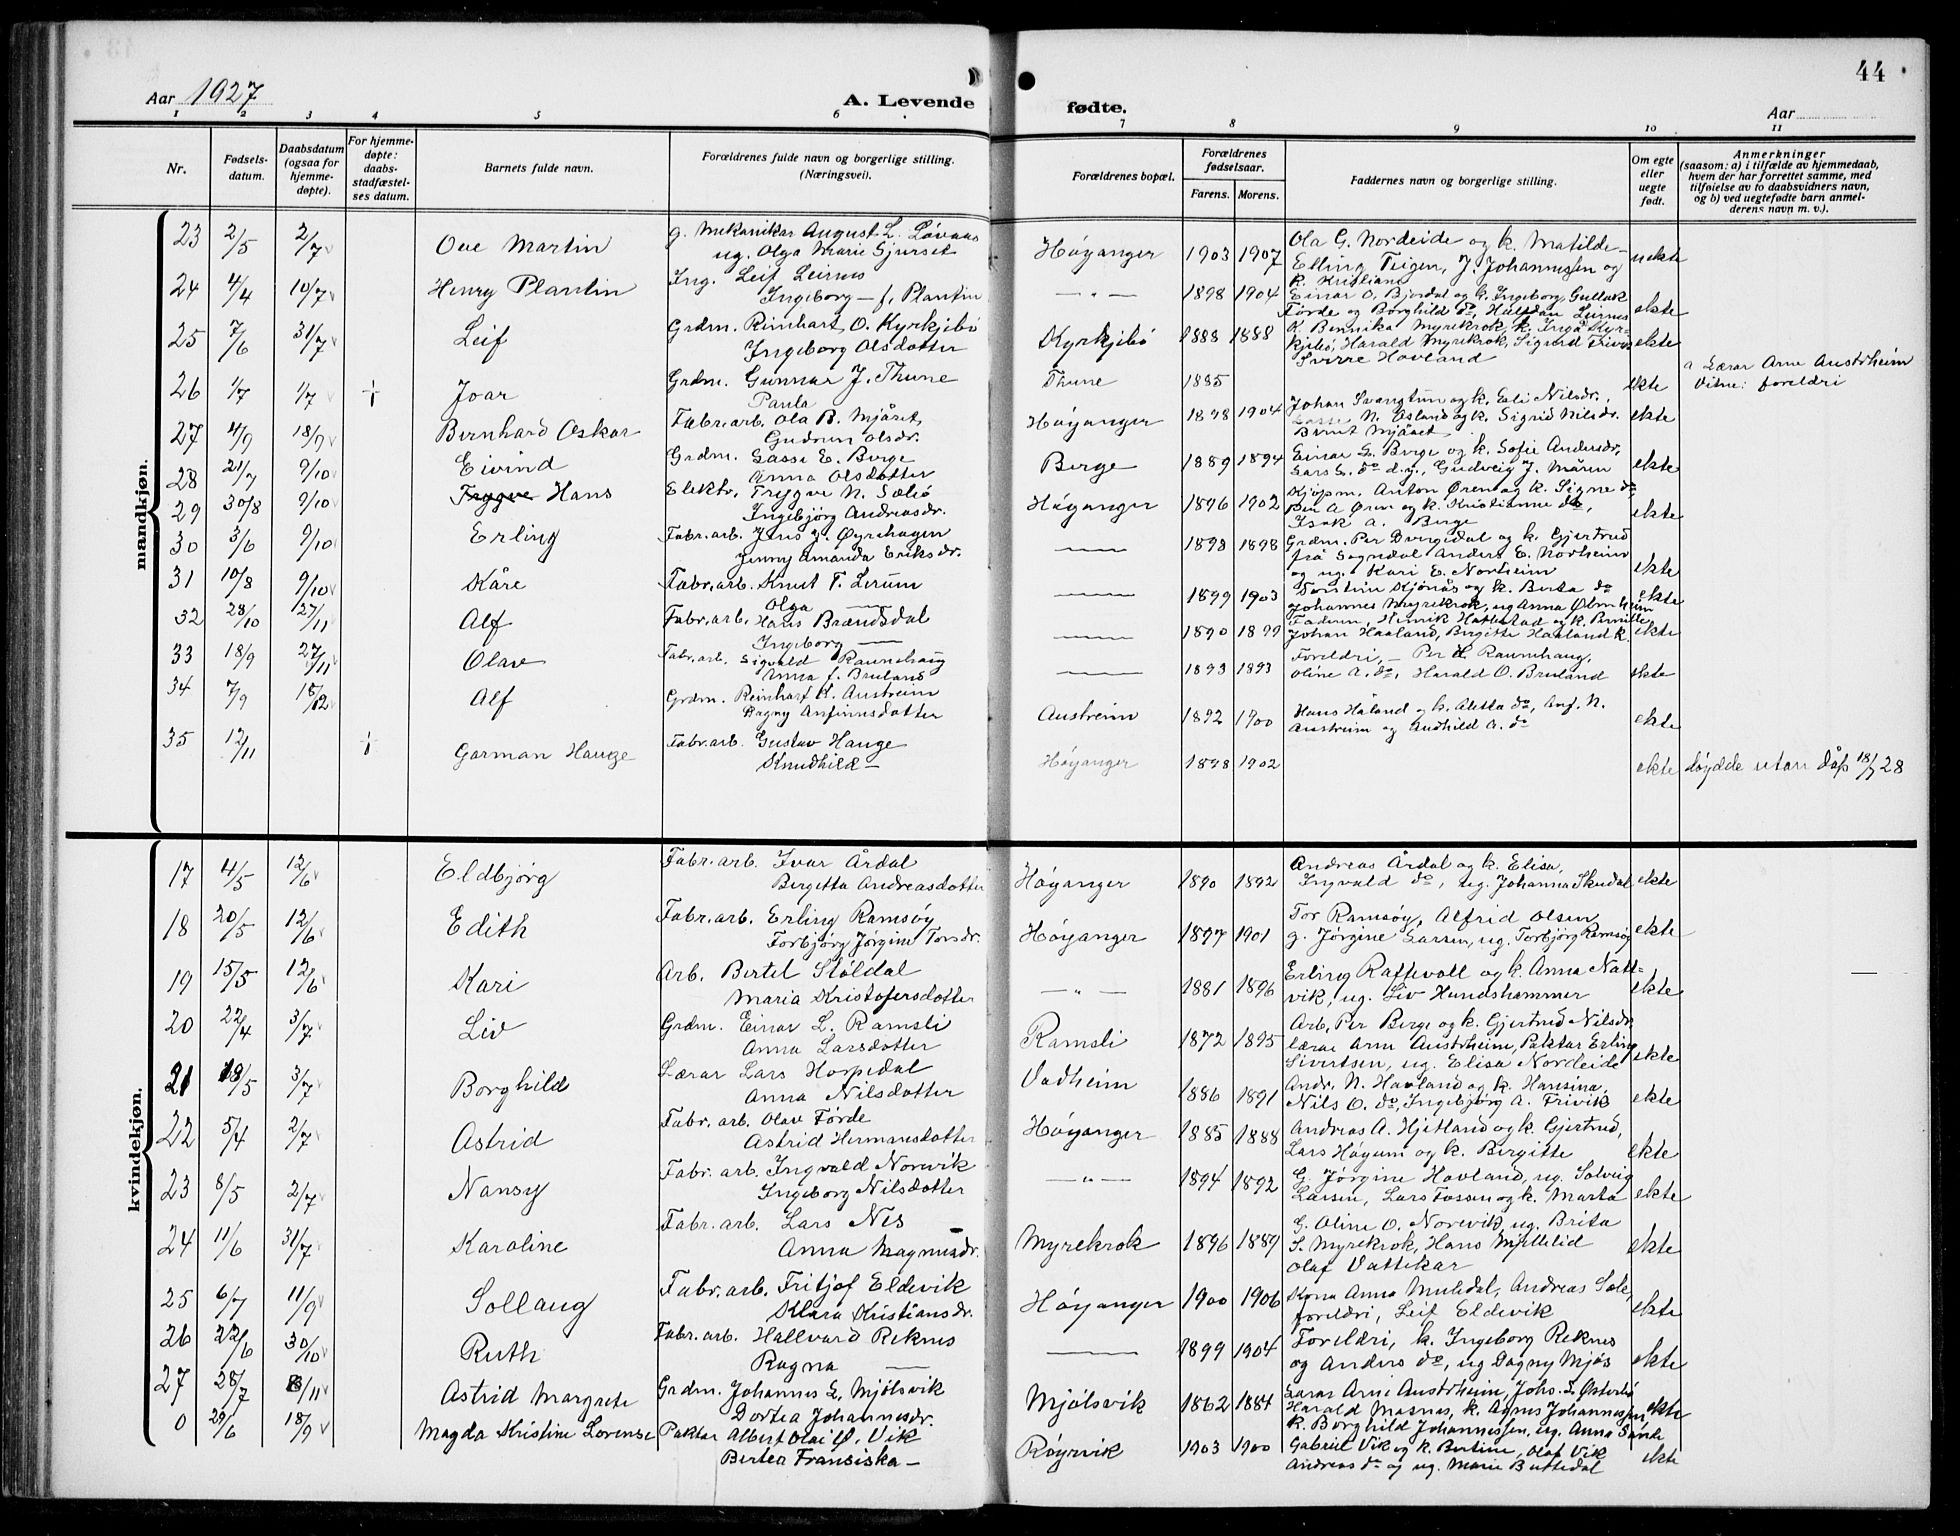 44
Aar 1927
A. Levende fødte.
Aar
1 2 3 4 5 6 7 8 9 10 11
Nr.
Fødsels-
datum.
Daabsdatum
(ogsaa for
hjemme-
døpte).
For hjemme-
døpte:
daabs-
stadfæstel-
ses datum.
Barnets fulde navn.
Forældrenes fulde navn og borgerlige stilling.
(Næringsvei).
Forældrenes bopæl.
Forældrenes
fødselsaar.
Farens. Morens.
Faddernes navn og borgerlige stilling.
Om egte
eller
uegte
født.
Anmerkninger
(saasom: a) i tilfælde av hjemmedaab,
hvem der har forrettet samme, med
tilføielse av to daabsvidners navn,
og b) ved uegtefødte barn anmel-
derens navn m. v.).
mandkjøn.
23 2/5 2/7 Ove Martin g. Mekanikar August L. Løvaas Høyanger 1903 1907 Ola G. Nordeide og k. Matilde uekte
ug. Olga Marie Gjerset Elling Teigen, J. Johannessen og
k. Kristiane
24 4/4 10/7 Henry Plantin Ing. Leif Leirnes — " — 1898 1904 Einar O. Bjordal og G. Ingeborg Gullak ekte
Ingeborg — f. Plantin Førde og Borghild do, Halfdan Leirnes
25 7/6 31/7 Leif Grdm. Reinhart O. Kyrkjebø Kyrkjebø 1888 1888 K. Bennika Myrekrok, k. Inga Kyr- ekte
Ingeborg Olsdotter kjebø, Harald Myrekrok, Sigurd Trivik
Sverre Hovland
26 1/7 1/7 + Joar Grdm. Gunnar J. Thune Thune 1885 ekte a Lærar Arne Austrheim
Paula Vitne: foreldri
27 4/9 18/9 Bernhard Oskar Fabr.arb. Ola B. Mjåset Høyanger 1898 1904 Johan Svangtun og k. Eli Nilsdr., ekte
Gudrun Olsdr. Lasse N. Øsland og k. Sigrid Nilsdr.
Bernt Mjåset
28 21/7 9/10 Eivind Grdm. Lasse E. Berge Berge 1889 1894 Einar L. Berge og k. Sofie Andersdr, ekte
Anna Olsdotter Lars L. do d.y., Gudveig J. Måren
29 30/8 9/10 Trygve Hans Elektr. Trygve N. Sæbø Høyanger 1896 1902 Kjøpm. Anton Øren og k. Signe do ekte
Ingebjørg Andreasdr. Per A Øren og k. Kristianne do,
Isak A. Berge
30 3/6 9/10 Erling Fabr.arb. Jens J. Øyrehagen — 1898 1898 Grdm. Per Dvergsdal og k. Gjertrud ekte
Jenny Amanda Eriksdr. frå Sogndal Anders E. Norheim
og ug. Kari E. Norheim
31 10/8 9/10 Kåre Fabr.arb. Knut T. Lerum — 1899 1903 Torstein Kjønås og k. Berta do ekte
Olga — Johannes Myrekrok, ug Anna Ølmheim
32 28/10 27/11 Alf Fabr.arb. Hans Brændsdal — 1890 1899 Faderen, Henrik Hattestad og k. Pernille ekte
Ingeborg — Johan Haaland, Birgitte Haaland k.
33 18/9 27/11 Olav Fabr.arb. Sigvald Raunehaug — 1893 1893 Foreldri, — Per H. Raunehaug, ekte
Anna f. Breiland Oline A. do, Harald O. Breiland
34 7/9 18/12 Alf Grdm. Reinhart K. Austreim Austreim 1892 1900 Hans Håland og k. Aletta do, Anf. N. ekte
Dagny Anfinnsdotter Austreim og Audhild A. do
35 12/11 + Garman Hauge Fabr.arb. Gustav Hauge Høyanger 1898 1902 ekte døydde utan dåp 18/7 28
Knudhild —
kvindekjøn.
17 4/5 12/6 Eldbjørg Fabr.arb. Ivar Årdal Høyanger 1890 1892 Andreas Årdal og k. Elisa, ekte
Bergitta Andreasdotter Ingvald do, ug. Johanna Skudal
18 20/5 12/6 Edith Fabr.arb. Erling Ramsøy Høyanger 1897 1901 Tor Ramsøy, Alfrid Olsen ekte
Torbjørg Jørgine Torsdr. g. Jørgine Larsen, ug. Torbjørg Ramsøy
19 15/5 12/6 Kari Arb. Bertel Støldal — " — 1881 1896 Erling Raftevoll og k. Anna Natt- ekte
Maria Kristofersdotter vik, ug. Liv Hundshammer
20 22/4 3/7 Liv Grdm. Einar L. Ramsli Ramsli 1872 1895 Arb. Per Berge og k. Gjertrud Nilsdr. ekte
Anna Larsdotter lærar Arne Austrheim, Paktar Erling
Sivertsen, ug. Elisa Nordeide
21 18/5 3/7 Borghild Lærar Lars Hopedal Vadheim 1886 1891 Andr. N. Havland og k. Hansina, ekte
Anna Nilsdotter Nils O. do, Ingebjørg A. Trivik
22 5/4 2/7 Astrid Fabr. arb. Olav Førde Høyanger 1885 1888 Andreas A. Hjetland og k. Gjertrud, ekte
Astrid Hermansdotter Lars Høyum og k. Birgitte
23 8/5 2/7 Nansy Fabr. arb. Ingvald Norevik — " — 1894 1892 G. Jørgine Hovland, ug. Solveig ekte
Ingeborg Nilsdotter Larsen, Lars Fossen og k. Marta
24 11/6 31/7 Karoline Fabr. arb. Lars Nes Myrekrok 1896 1889 G. Oline O. Norevik, ug. Brita ekte
Anna Magnusdr. S. Myrekrok, Hans Myllelid
Olaf Vattekar
25 6/7 11/9 Sollaug Fabr. arb. Fritjof Eldevik Høyanger 1900 1906 Kona Anna Muldal, Andreas Sole ekte
Klara Kristiansdr. foreldri, Leif Eldevik
26 22/6 30/10 Ruth Fabr. arb. Hallvard Reknes — 1899 1904 Foreldri, k. Ingeborg Reknes ekte
Ragna — og Anders do, ug Dagny Mjøs
27 28/7 6/11 Astrid Margrete Grdm. Johannes L. Mjølsvik Mjølsvik 1862 1884 Lærar Arne Austrheim, Johs. L Østerbø ekte
Dortea Johannesdr. Harald Masnes, k. Agnes Johannessen,
k. Borghild Johannessen, ug. Anna Sande
0 29/6 18/9 Magda Kristine Lorense Paktar Albert Olai Ø. Vik Røyrvik 1903 1900 Gabriel Vik og k. Bertine, Olaf Vik ekte
Bertea Fransiska — Andreas do og ug. Marie Buttedal